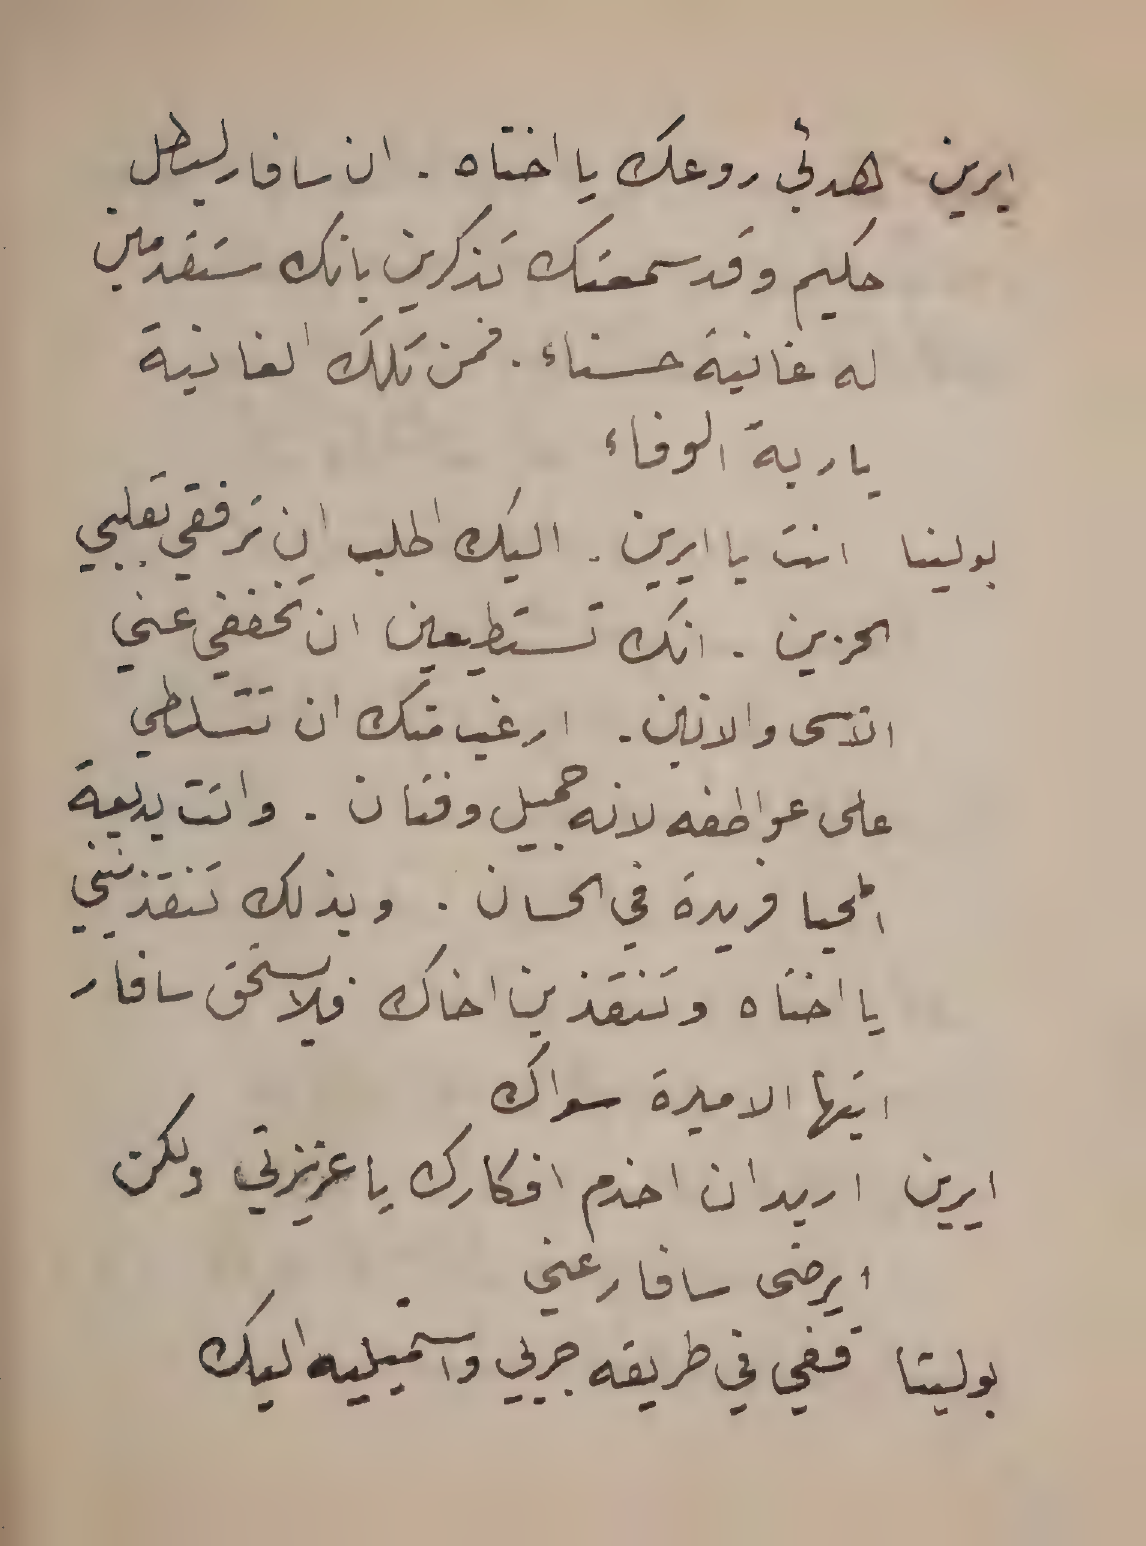 ايرين هدئي روعك يا اختاه . ان سافار لبطل
حكيم وقد سمعتك تذكرين بانك ستقدمين
له غانية حسناء . فمن تلك الغانية
يا ربة الوفاء
بولينا انت يا ايرين . اليك اطلب ان ترفقي بقلبي
الحزين . انك تستطيعين ان تخففي عني
الآسى والانين . ارغب منك ان تتسلطي
على عواطفه لانه جميل وفتان . وانت بديعة
المحيا فريدة في الحسان . وبذلك تنقذينني
يا اختاه وتنقذين اخاك فلا يستحق سافار
ايتها الاميرة سواك
ايرين اريد ان اخدم افكارك يا عزيزتي ولكن
ايرضى سافار عني
بولينا قفي في طريقه جربي واستميليه اليك